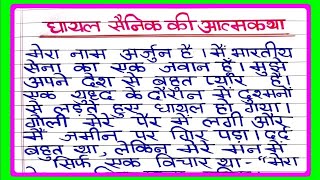 घायल सैनिक की आत्मकथा
मेरा नाम अर्जुन है। मैं भारतीय
सेना का एक जवान हैं। मुझे
अपने देश से बहुत प्यार है।
एक युध्द के दौरान में दुश्मनों
से लड़ते हुए घायल हो गया।
गोली मेरे पैर में लगी और
मैं जमीन पर गिर पड़ा। दर्द
बहुत था, लेकिन मेरे मन में
सिर्फ एक विचार था- "मेरा